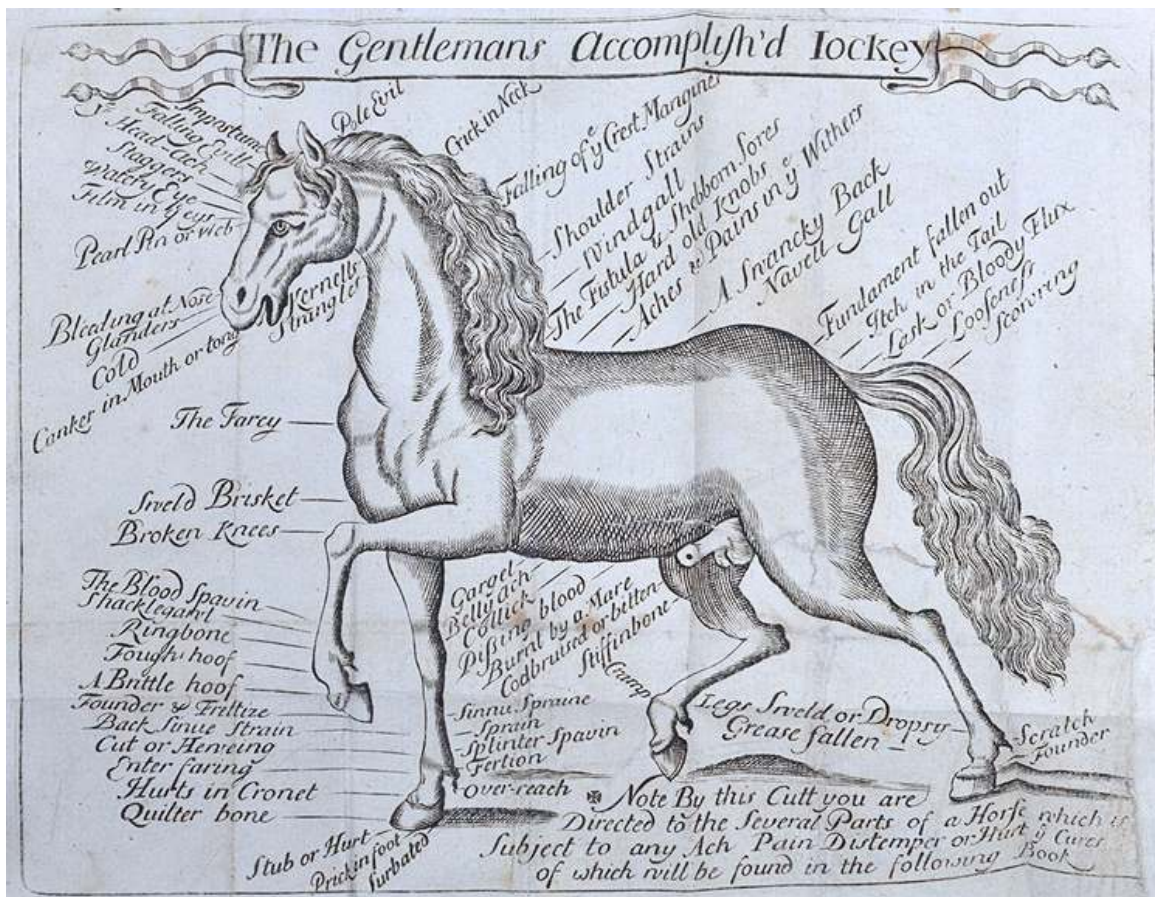 The Gentlemans Accomplish'd Iockey
Impostume
Falling Evill
Head-Ach
Staggers
Watery Eye
Film in yᵉ eys
Pearl Pin or Web
Pole Evil
Crick in Neck
Falling of yᵉ Crest Manginess
Shoulder Strains
Windgall
The Fistula & Shebborn Sores
Hard old Knobs
Aches & Pains in yᵉ Withers
A Swancky Back
Navell Gall
Fundament fallen out
Itch in the Tail
Lask or Bloody Flux
Looseness
Scowring
Bleading at Nose
Glanders
Cold
Canker in Mouth or tong
Kernells
Strangles
The Farcy
Sweld Brisket
Broken Knees
The Blood Spavin
Shacklegaul
Ringbone
Tough hoof
A Brittle hoof
Founder & Frittize
Back Sinue Strain
Cut or Herveing
Enter faring
Hurts in Cronet
Quilter bone
Stub or Hurt
Prick in foot
Surbated
Gargel
Belly Ach
Collick
Pissing blood
Burnt by a Mare
Codbruised or bitten
Stiffinbone
Cramp
Sinnu Spraine
Sprain
Splinter Spavin
Fertion
Over-reach
Legs Sweld or Dropsy
Grease fallen
Scratch
Founder
Note By this Cutt you are
Directed to the Several Parts of a Horse which is
Subject to any Ach Pain Distemper or Hurt yᵉ Cures
of which will be found in the following Book